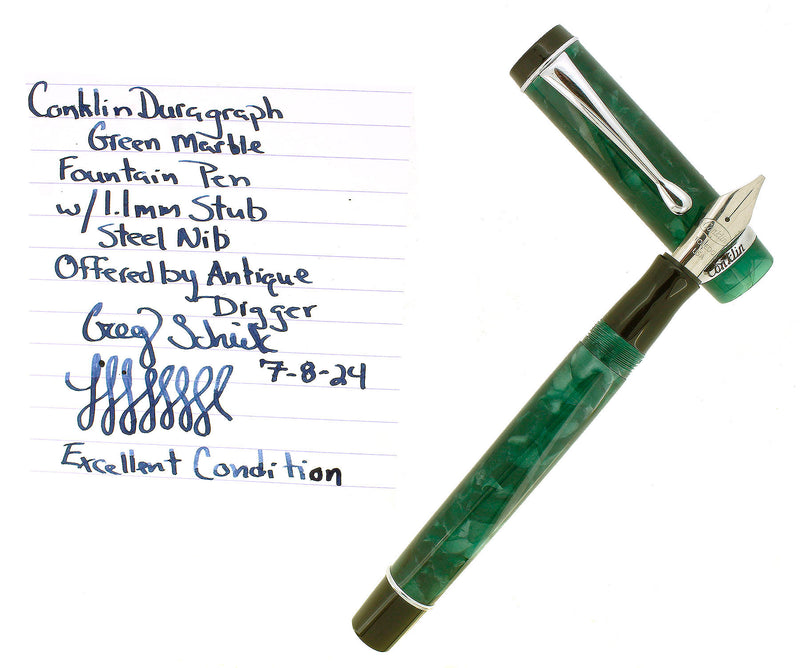 Conklin Duragraph
Green Marble
Fountain Pen
w/1.1mm Stub
Steel Nib
Offered by Antique
Digger
Greg
7-8-24
Excellent Condition
Conklin